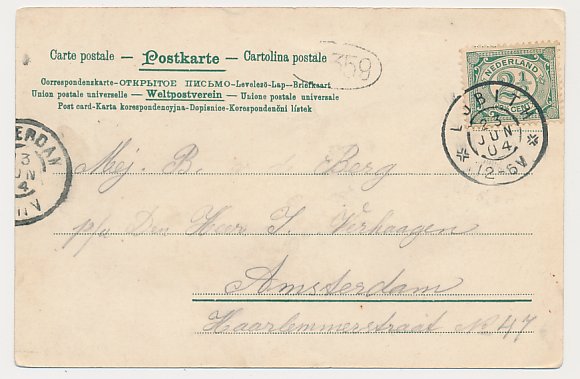 Carte postale — Postkarte — Cartolina postale
Correspondenskarte–ОТКРЫТОЕ ПИСЬМО–Levelező–Lap–Briefkaart
Union postale universelle – Weltpostverein – Unione postale universale
Post card-Karta korespondencyjna-Dopisnice-Korespondenční lístek
359
NEDERLAND
2½
CENT
LOBITH
23
JUN
04
12-6V
ERDAM
3
UN
4
11V
Mej. B. v d Berg
p/a Den Heer J. Verhaagen
Amsterdam
Haarlemmerstraat No 47